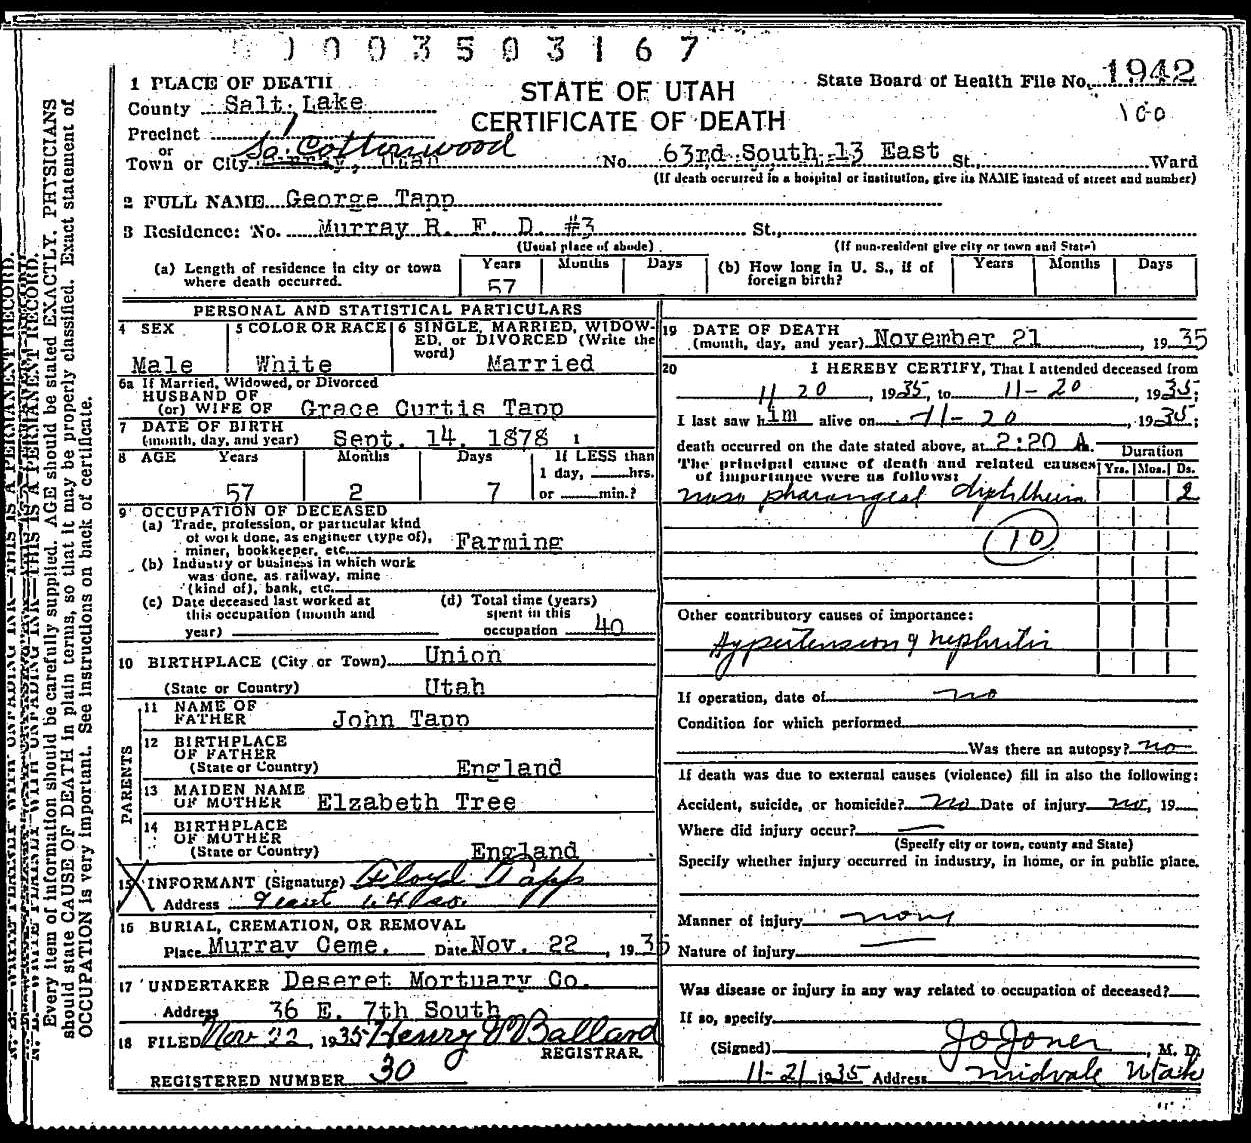 0003503167
1 PLACE OF DEATH
STATE OF UTAH
CERTIFICATE OF DEATH
State Board of Health File No. 1942
100
County Salt Lake
Precinct 1
or
Town or City Murray, Utah So. Cottonwood No. 63rd South 13 East St., Ward
(If death occurred in a hospital or institution, give its NAME instead of street and number)
2 FULL NAME George Tapp
3 Residence: No. Murray R. F. D. #3 St.,
(Usual place of abode) (If non-resident give city or town and State)
(a) Length of residence in city or town where death occurred. Years 57 Months Days
(b) How long in U. S., if of foreign birth? Years Months Days
PERSONAL AND STATISTICAL PARTICULARS
4 SEX Male
5 COLOR OR RACE White
6 SINGLE, MARRIED, WIDOWED, or DIVORCED (Write the word) Married
6a If Married, Widowed, or Divorced
HUSBAND OF
(or) WIFE OF Grace Curtis Tapp
7 DATE OF BIRTH
(month, day, and year) Sept. 14, 1878 1
8 AGE Years Months Days If LESS than
1 day, hrs.
57 2 7 or min.?
9 OCCUPATION OF DECEASED
(a) Trade, profession, or particular kind
of work done, as engineer (type of),
miner, bookkeeper, etc. Farming
(b) Industry or business in which work
was done, as railway, mine
(kind of), bank, etc.
(c) Date deceased last worked at
this occupation (month and
year)
(d) Total time (years)
spent in this
occupation 40
10 BIRTHPLACE (City or Town) Union
(State or Country) Utah
PARENTS
11 NAME OF
FATHER John Tapp
12 BIRTHPLACE
OF FATHER
(State or Country) England
13 MAIDEN NAME
OF MOTHER Elzabeth Tree
14 BIRTHPLACE
OF MOTHER
(State or Country) England
15 INFORMANT (Signature) Floyd Tapp
Address
16 BURIAL, CREMATION, OR REMOVAL
Place Murray Ceme. Date Nov. 22, 1935
17 UNDERTAKER Deseret Mortuary Co.
Address 36 E. 7th South
18 FILED Nov 22, 1935 Henry J Ballard
REGISTRAR
REGISTERED NUMBER 30
19 DATE OF DEATH
(month, day, and year) November 21, 1935
20 I HEREBY CERTIFY, That I attended deceased from
11 20, 1935, to 11-20, 1935;
I last saw him alive on 11-20, 1935;
death occurred on the date stated above, at 2:20 A.
The principal cause of death and related causes
of importance were as follows:
Duration
Yrs. Mos. Ds.
naso pharangeal diphtheria 2
10
Other contributory causes of importance:
Hypertension & nephritis
If operation, date of no
Condition for which performed
Was there an autopsy? no
If death was due to external causes (violence) fill in also the following:
Accident, suicide, or homicide? no Date of injury no, 19
Where did injury occur? —
(Specify city or town, county and State)
Specify whether injury occurred in industry, in home, or in public place.
Manner of injury none
Nature of injury —
Was disease or injury in any way related to occupation of deceased?
If so, specify
(Signed) J O Jones, M. D.
11-21 1935 Address Midvale Utah
Every item of information should be carefully supplied. AGE should be stated EXACTLY. PHYSICIANS
should state CAUSE OF DEATH in plain terms, so that it may be properly classified. Exact statement of
OCCUPATION is very important. See instructions on back of certificate.